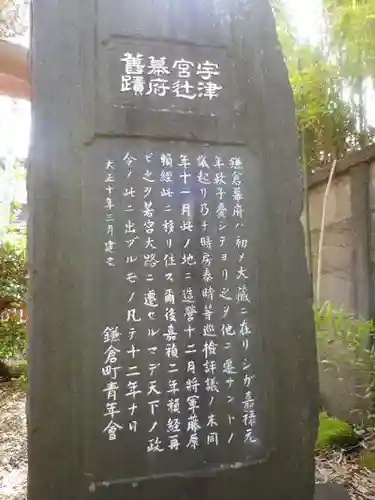 宇津
宮辻
幕府
舊蹟
鎌倉幕府ハ初メ大藏ニ在リシガ嘉祿元
年政子薨シテヨリ之ヲ他ニ遷サントノ
議起リ乃チ時房泰時等巡檢評議ノ末同
年十一月此ノ地ニ造營十二月將軍藤原
賴經此ニ移リ住ス爾後嘉禎二年賴經再
ビ之ヲ若宮大路ニ遷セルマデ天下ノ政
令ノ此ニ出ヅルモノ凡テ十二年ナリ
大正十年三月建之
鎌倉町青年會